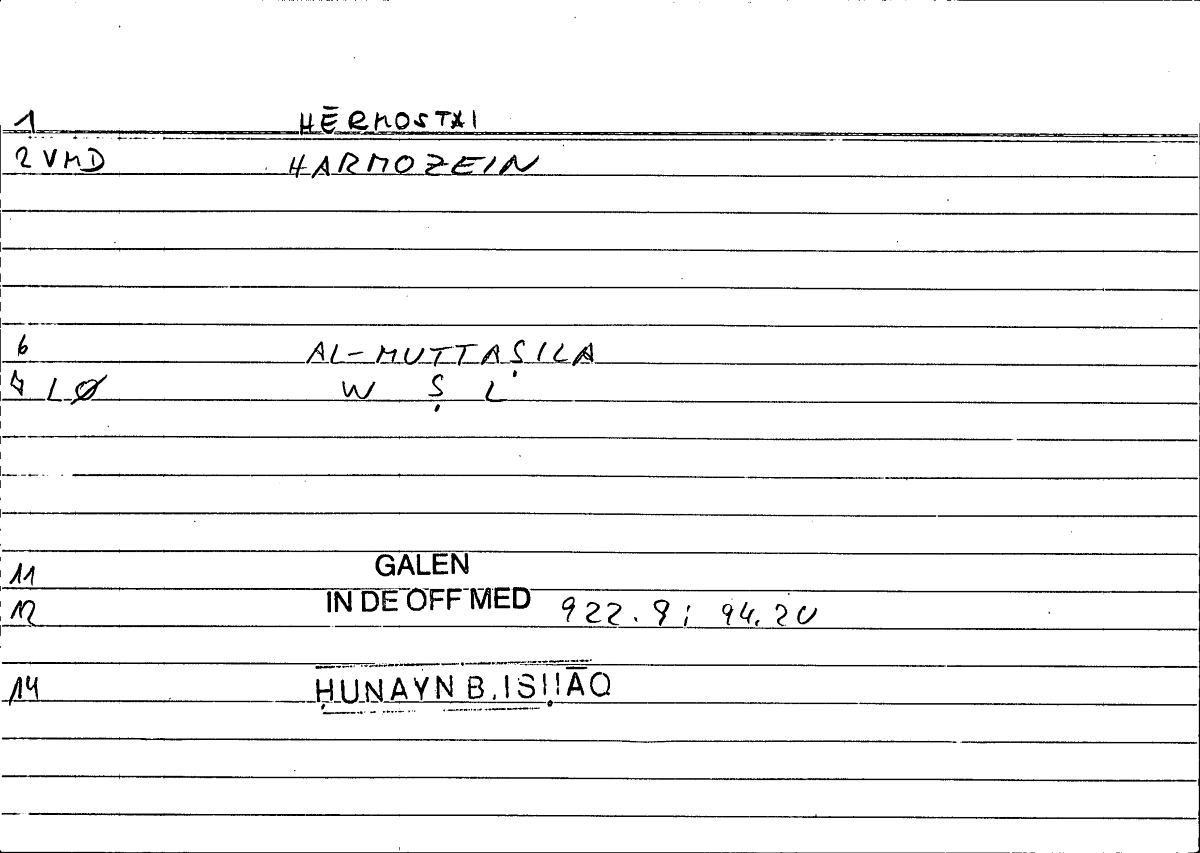 1 HĒRMOSTAI
2 VMD HARMOZEIN
6 AL-MUTTAṢILA
7 LØ W Ṣ L
11 GALEN
12 IN DE OFF MED 922.9; 94.20
14 ḤUNAYN B. ISḤĀQ